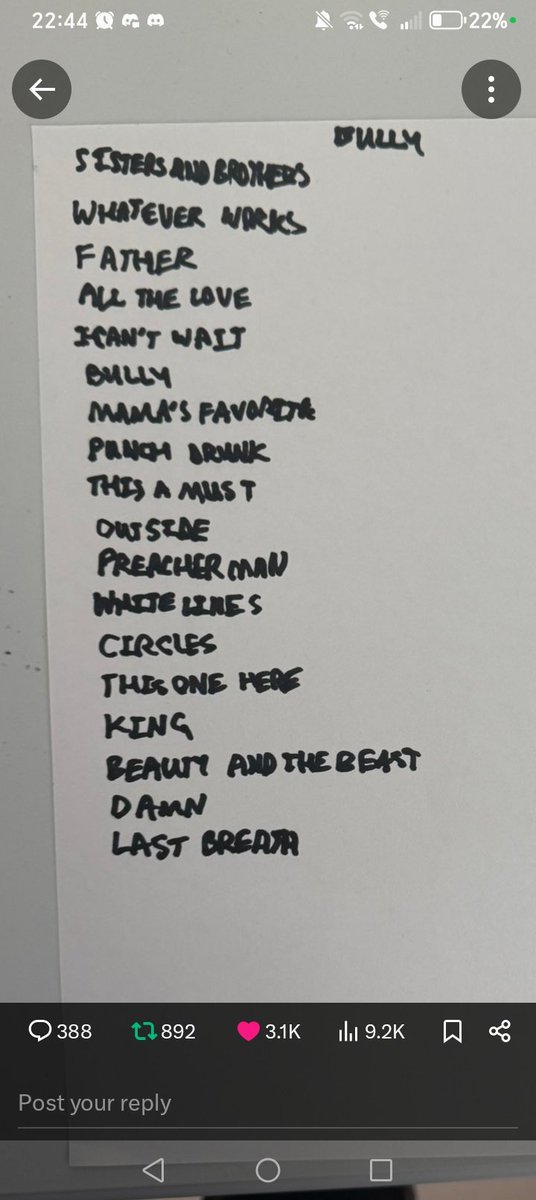 22:44
22%
BULLY
SISTERS AND BROTHERS
WHATEVER WORKS
FATHER
ALL THE LOVE
I CAN'T WAIT
BULLY
MAMA'S FAVORITE
PUNCH DRUNK
THIS A MUST
OUTSIDE
PREACHER MAN
WHITE LINES
CIRCLES
THIS ONE HERE
KING
BEAUTY AND THE BEAST
DAMN
LAST BREATH
388 892 3.1K 9.2K
Post your reply